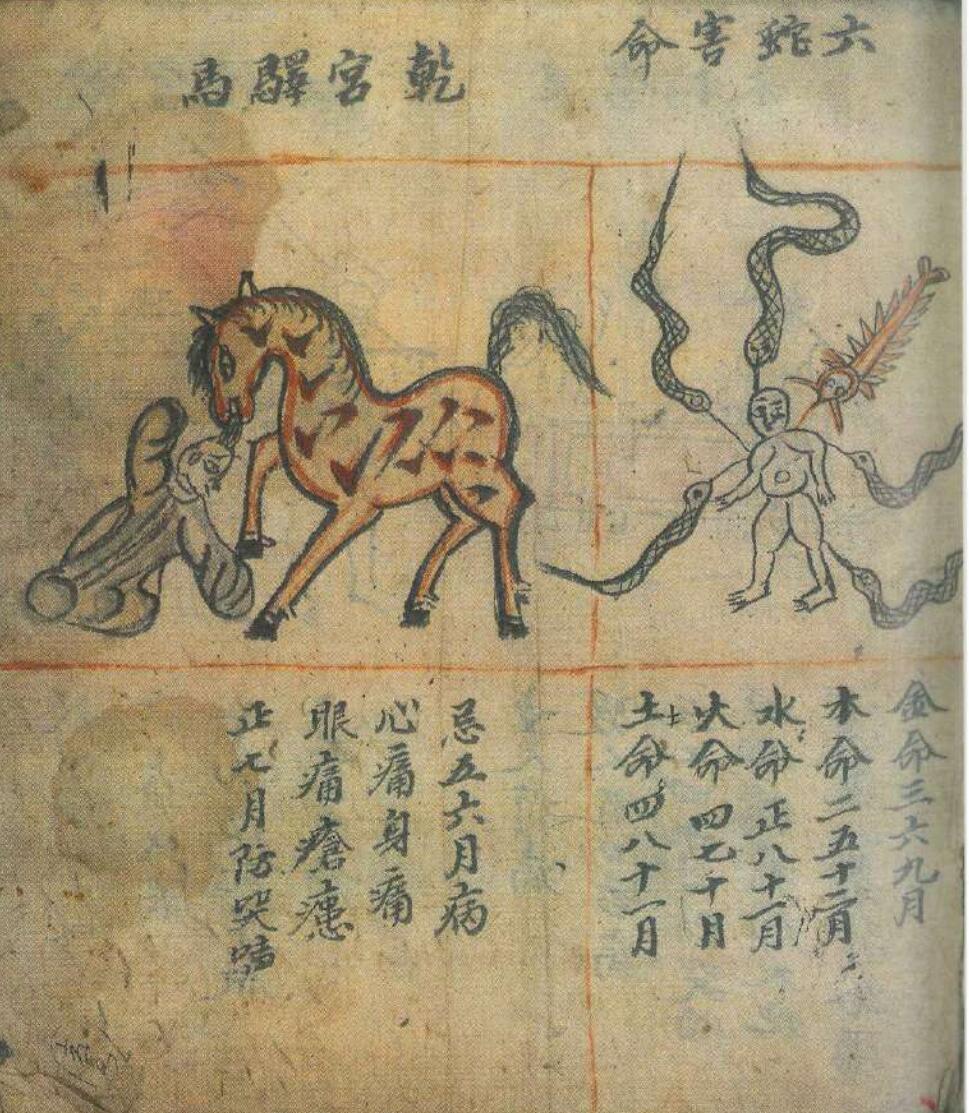 六蛇害命
乾宮驛馬
金命三六九月
木命二五十二月
水命正八十一月
火命四七十月
土命四八十一月
忌五六月病
心痛身痛
眼痛瘡
正七月防哭